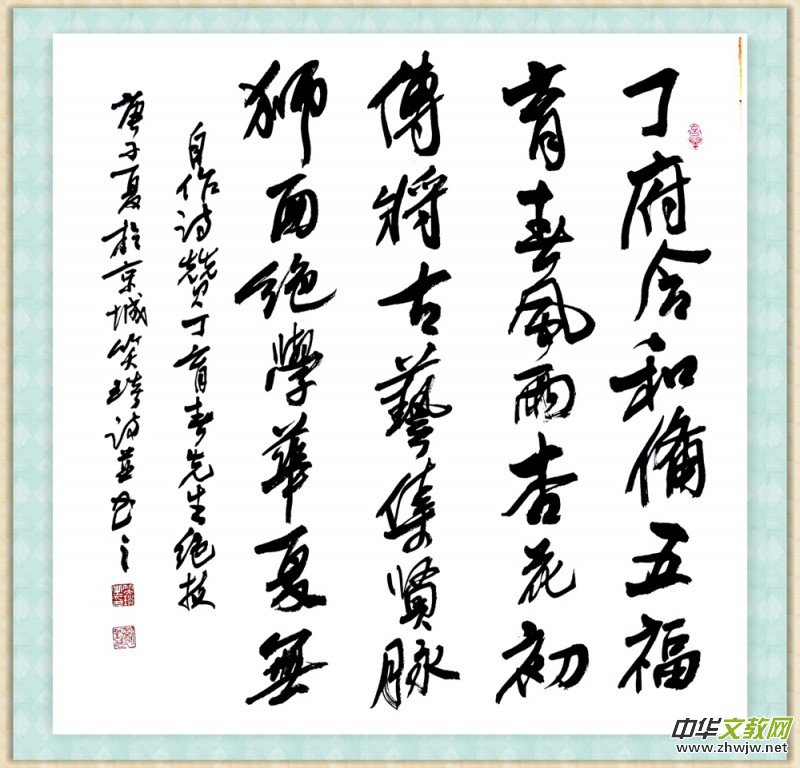 丁府合和備五福
育春風雨杏花初
傳將古藝集賢脉
獅面絶學華夏無
自作诗贊丁育春先生绝技
庚子夏於京城笑琦诗並书之
中华文教网
www.zhwjw.net